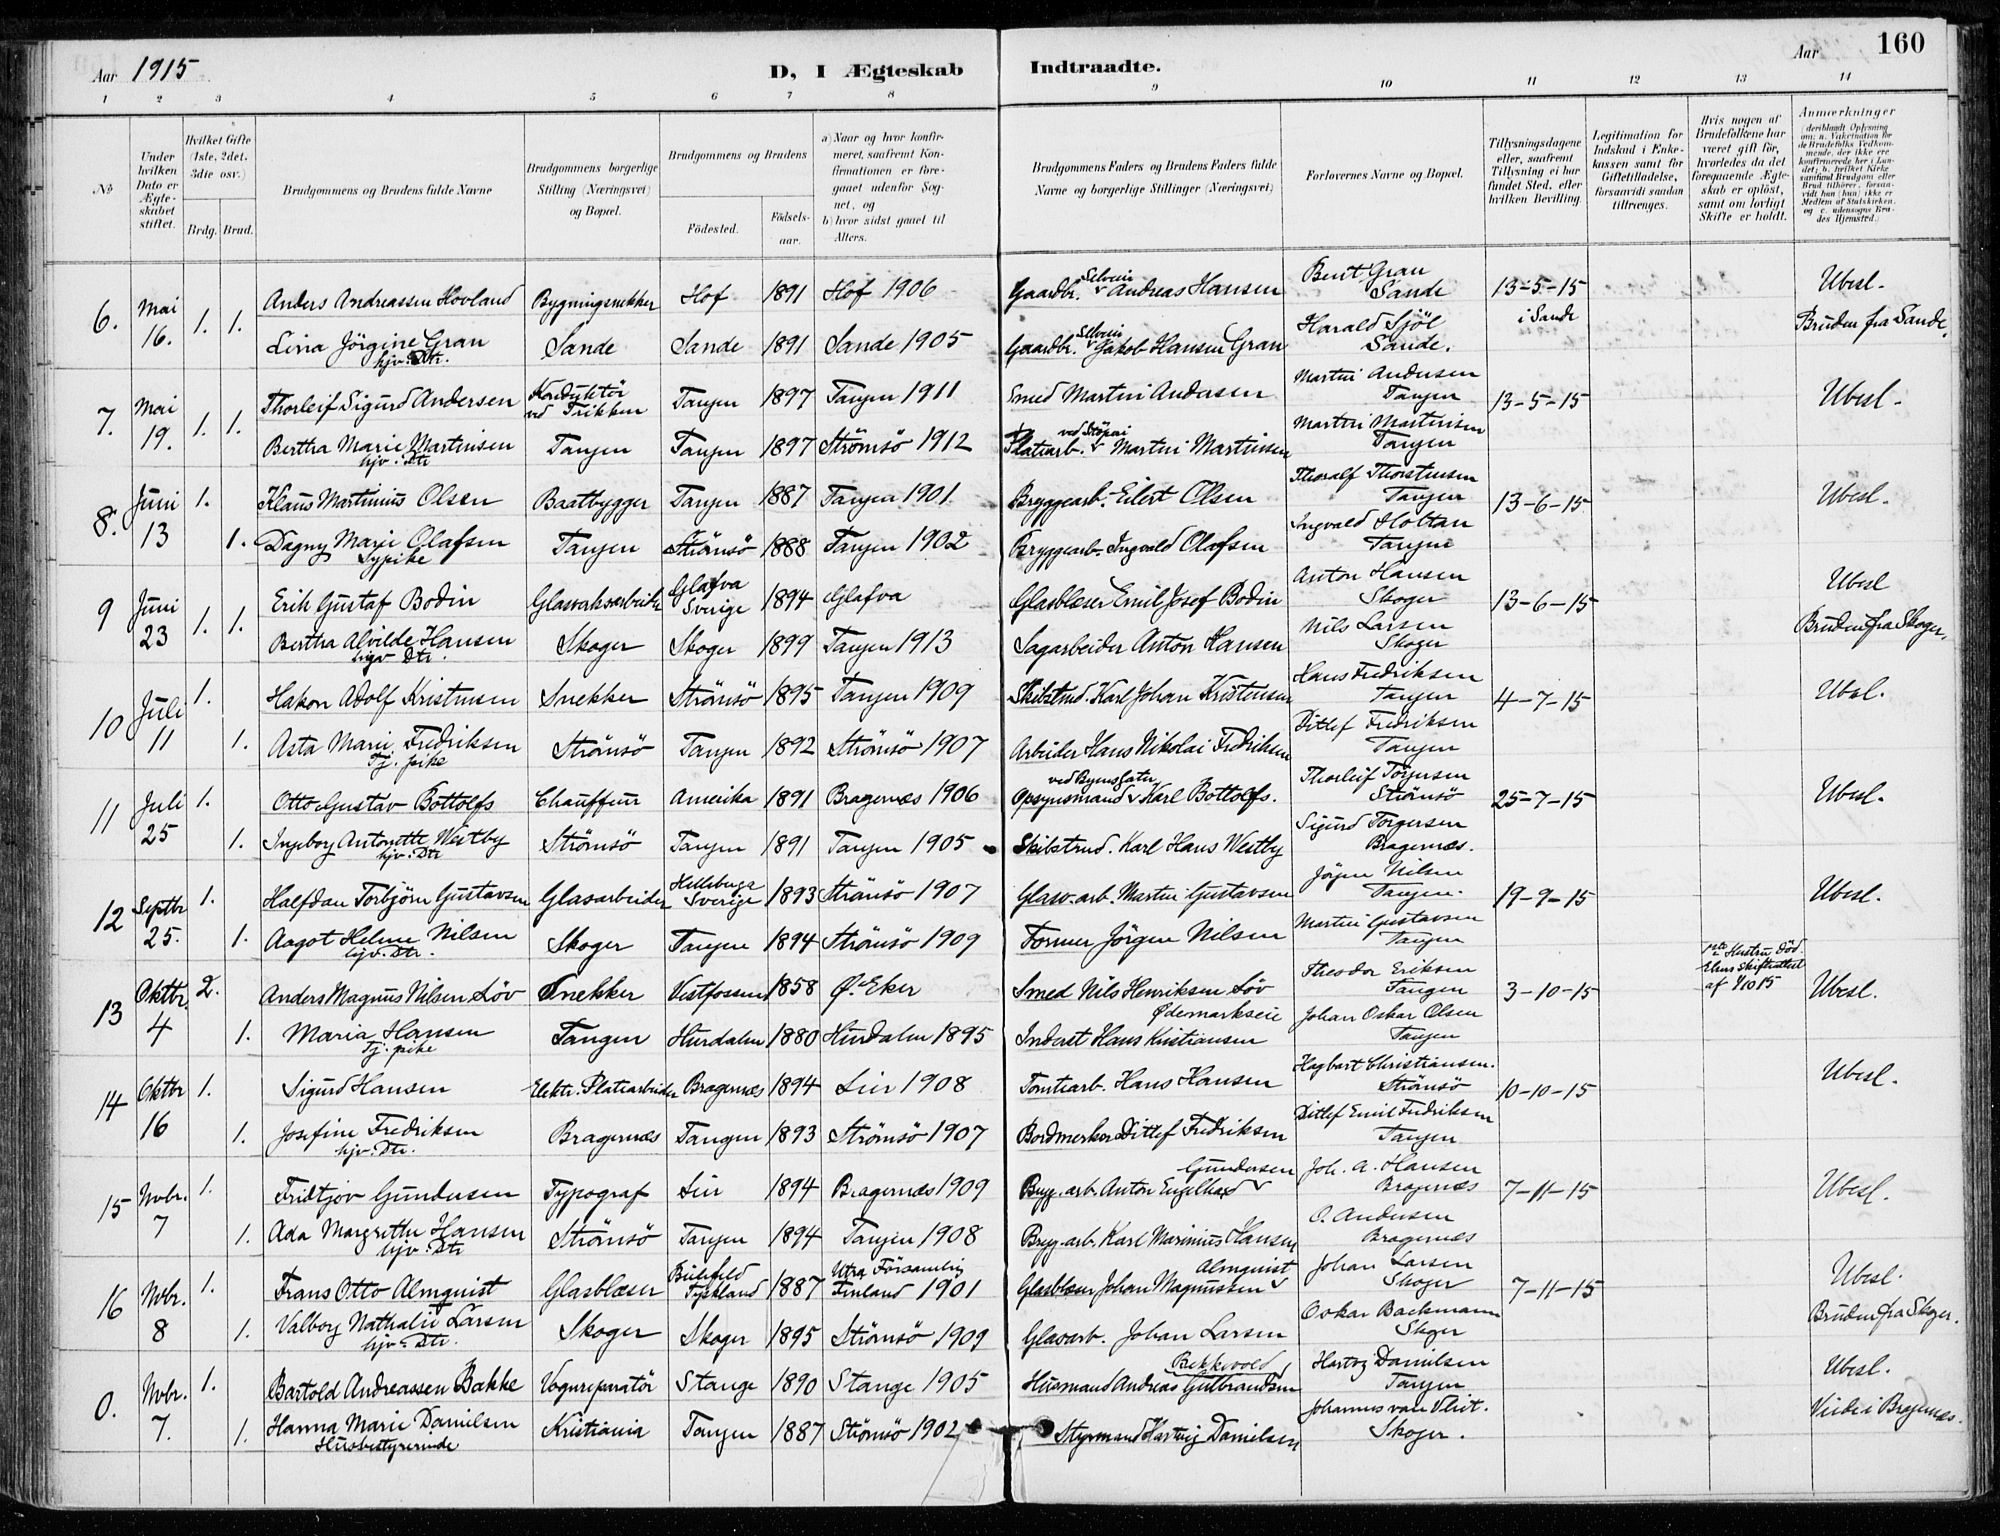 Aar 1915
D, I Ægteskab Indtraadte.
Aar
160
1 2 3 4 5 6 7 8 9 10 11 12 13 14
№
Under hvilken Dato er Ægteskabet stiftet.
Hvilket Gifte (1ste, 2det, 3die osv.)
Brdg. Brud.
Brudgommens og Brudens fulde Navne
Brudgommens borgerlige Stilling (Næringsvei) og Bopæl.
Brudgommens og Brudens
Fødested. Fødselsaar.
a) Naar og hvor konfirmeret, saafremt Konfirmationen er foregaaet udenfor Sognet, og
b) hvor sidst gaaet til Alters.
Brudgommens Faders og Brudens Faders fulde Navne og borgerlige Stillinger (Næringsvei)
Forlovernes Navne og Bopæl.
Tillysningsdagene eller, saafremt Tillysning ei har fundet Sted, efter hvilken Bevilling.
Legitimation for Indskud i Enkekassen samt for Giftetilladelse, forsaavidt saadan tiltrænges.
Hvis nogen af Brudefolkene har været gift før, hvorledes da det foregaaende Ægteskab er opløst, samt om lovligt Skifte er holdt.
Anmærkninger
6. Mai 16. 1. 1. Anders Andreassen Hovland Bygningsnekker Hof 1891 Hof 1906 Gaardbr. Selveier Andreas Hansen Berit Gran Sande 13-5-15 i Sande Ubesl.
Lina Jörgine Gran hjv. Dtr. Sande Sande 1891 Sande 1905 Gaardbr. Selveier Jakob Hansen Gran Harald Sjöl Sande. Bruden fra Sande.
7. Mai 19. 1. 1. Thorleif Sigurd Andersen Konduktör ved Trikken Tangen 1897 Tangen 1911 Smed Martin Andersen Martin Andersen Tangen 13-5-15 Ubesl.
Bertha Marie Martinsen hjv. Dtr Tangen Tangen 1897 Strömsö 1912 Martin Martinsen Martin Martinsen Tangen
8. Juni 13 1. Klaus Martinius Olsen Baatbygger Tangen 1887 Tangen 1901. Bryggearb. Eilert Olsen Thoralf Thorstensen Tangen 13-6-15 Ubesl.
1. Dagny Marie Olafsen Sypike Tangen Strömsö 1888 Tangen 1902 Bryggearb. Ingvald Olafsen Ingvald Holtan Tangen
9 Juni 23 1. 1. Erik Gustaf Bodin Glasværksarbeider Glafva Sverige 1894 Glafva Glasblæser Emil Josef Bodin Anton Hansen Skoger 13-6-15 Ubesl
Bertha Alvilde Hansen hjv Dtr. Skoger Skoger 1899 Tangen 1913 Sagarbeider Anton Hansen Nils Larsen Skoger Bruden fra Skoger.
10 Juli 11 1. Hakon Adolf Kristensen Snekker Strömsö 1895 Tangen 1909 Skibstmd. Karl Johan Kristensen Hans Fredriksen Tangen 4-7-15 Ubesl.
1. Asta Marie Fredriksen Tj. pike Strömsö Tangen 1892 Strömsö 1907 Arbeider Hans Nikolai Fredriksen Ditlef Fredriksen Tangen
11 Juli 25 1. Otto Gustav Bottolfs Chauffeur Amerika 1891 Bragernæs 1906 Opsynsmand ved Byens Gater Karl Bottolfs. Thorleif Torgersen Strömsö 25-7-15 Ubesl.
1. Ingeborg Antonette Westby hjv. Dtr Strömsö Tangen 1891 Tangen 1905 Skibstmd. Karl Hans Westby Sigurd Torgersen Bragernæs.
12 Septbr 25. 1. Halfdan Torbjörn Gustavsen Glasarbeider Helleberga Sverige 1893 Strömsö 1907 Glasv.arb. Martin Gustavsen Jörgen Nilsen Tangen. 19-9-15 Ubesl.
1. Aagot Helene Nilsen hjv. Dtr. Skoger Tangen 1894 Strömsö 1909 Former Jörgen Nilsen Martin Gustavsen Tangen
13 Oktbr. 4 2. Anders Magnus Nilsen Löv Snekker Vestfossen 1858 Ø. Eker Smed Nils Henriksen Löv Ødemarkseie Theodor Eriksen Tangen 3-10-15 1ste Hustru död. Ubesl.
1. Maria Hansen Tj. pike Tangen Hurdalen 1880 Hurdalen 1895 Inderst Hans Kristiansen Johan Oskar Olsen Tangen
14 Oktbr 16 1. Sigurd Hansen Elektr. Platearbeider Bragernæs 1894 Lier 1908 Tomtearb. Hans Hansen Hagbart Christiansen. Strömsö 10-10-15 Ubesl.
1. Josefine Fredriksen hjv. Dtr. Bragernæs Tangen 1893 Strömsö 1907 Bordmerker Ditlef Fredriksen Ditlef Emil Fredriksen Tangen
15 Nvbr. 7 1. Fridtjov Gundersen Typograf Lier 1894 Bragernæs 1909 Bryg. arb. Anton Engelhard Gundersen Joh. A. Hansen Bragernæs 7-11-15 Ubesl.
1. Ada Margrethe Hansen hjv. Dtr Strömsö Tangen 1894 Tangen 1908 Bryg. arb. Karl Marinius Hansen O. Andersen Bragernæs
16 Nvbr. 8 1. Frans Otto Almquist Glasblæser Bielefeld Tyskland 1887 Utra Församling Finland 1901 Glasblæser Johan Magnussen Almquist Johan Larsen Skoger 7-11-15 Ubesl.
1. Valborg Nathalie Larsen hjv. Dtr. Skoger Skoger 1895 Strömsö 1909 Glasarb. Johan Larsen Oskar Bachmann Skoger Bruden fra Skoger.
0. Nvbr. 7. 1. Bartold Andreassen Bakke Vognreparatör Stange 1890 Stange 1905 Husmand Andreas Gulbrandsen Bekkevold Hartvig Danielsen Tangen Ubesl.
1. Hanna Marie Danielsen Husbestyrerinde Kristiania Tangen 1887 Strömsö 1902 Styrmand Hartvig Danielsen Johannes van Vliet. Skoger. Viede i Bragernæs.